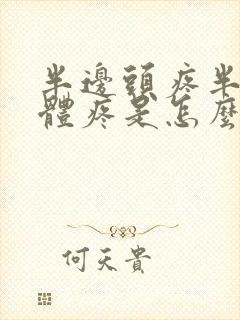 半邊頭疼半
體疼是怎麼
何天貴